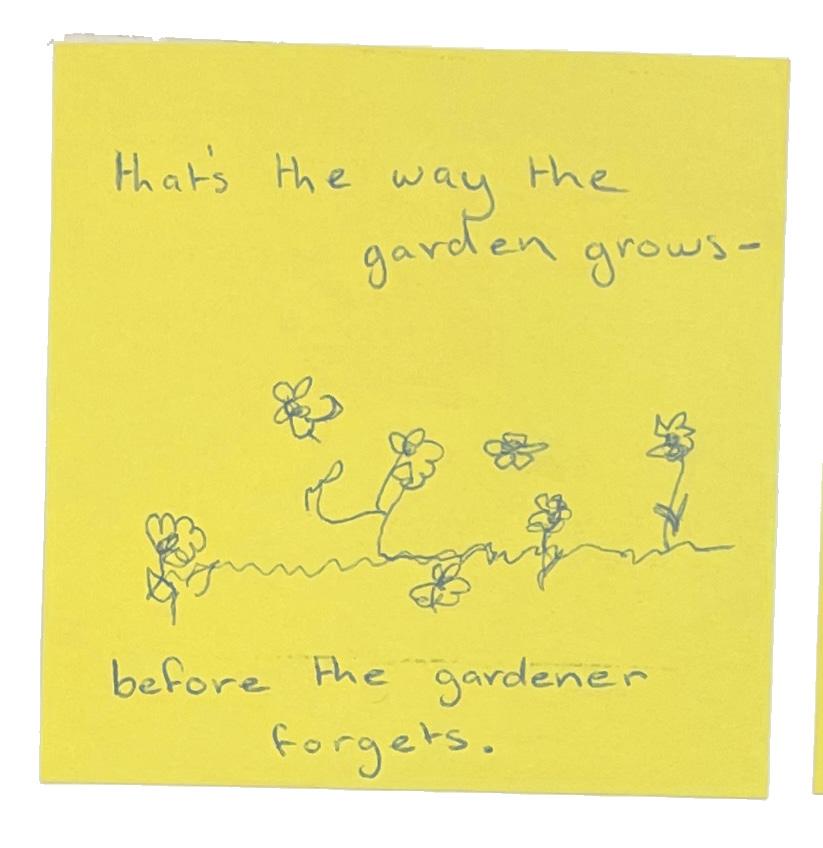 that's the way the
garden grows-
before the gardener
forgets.